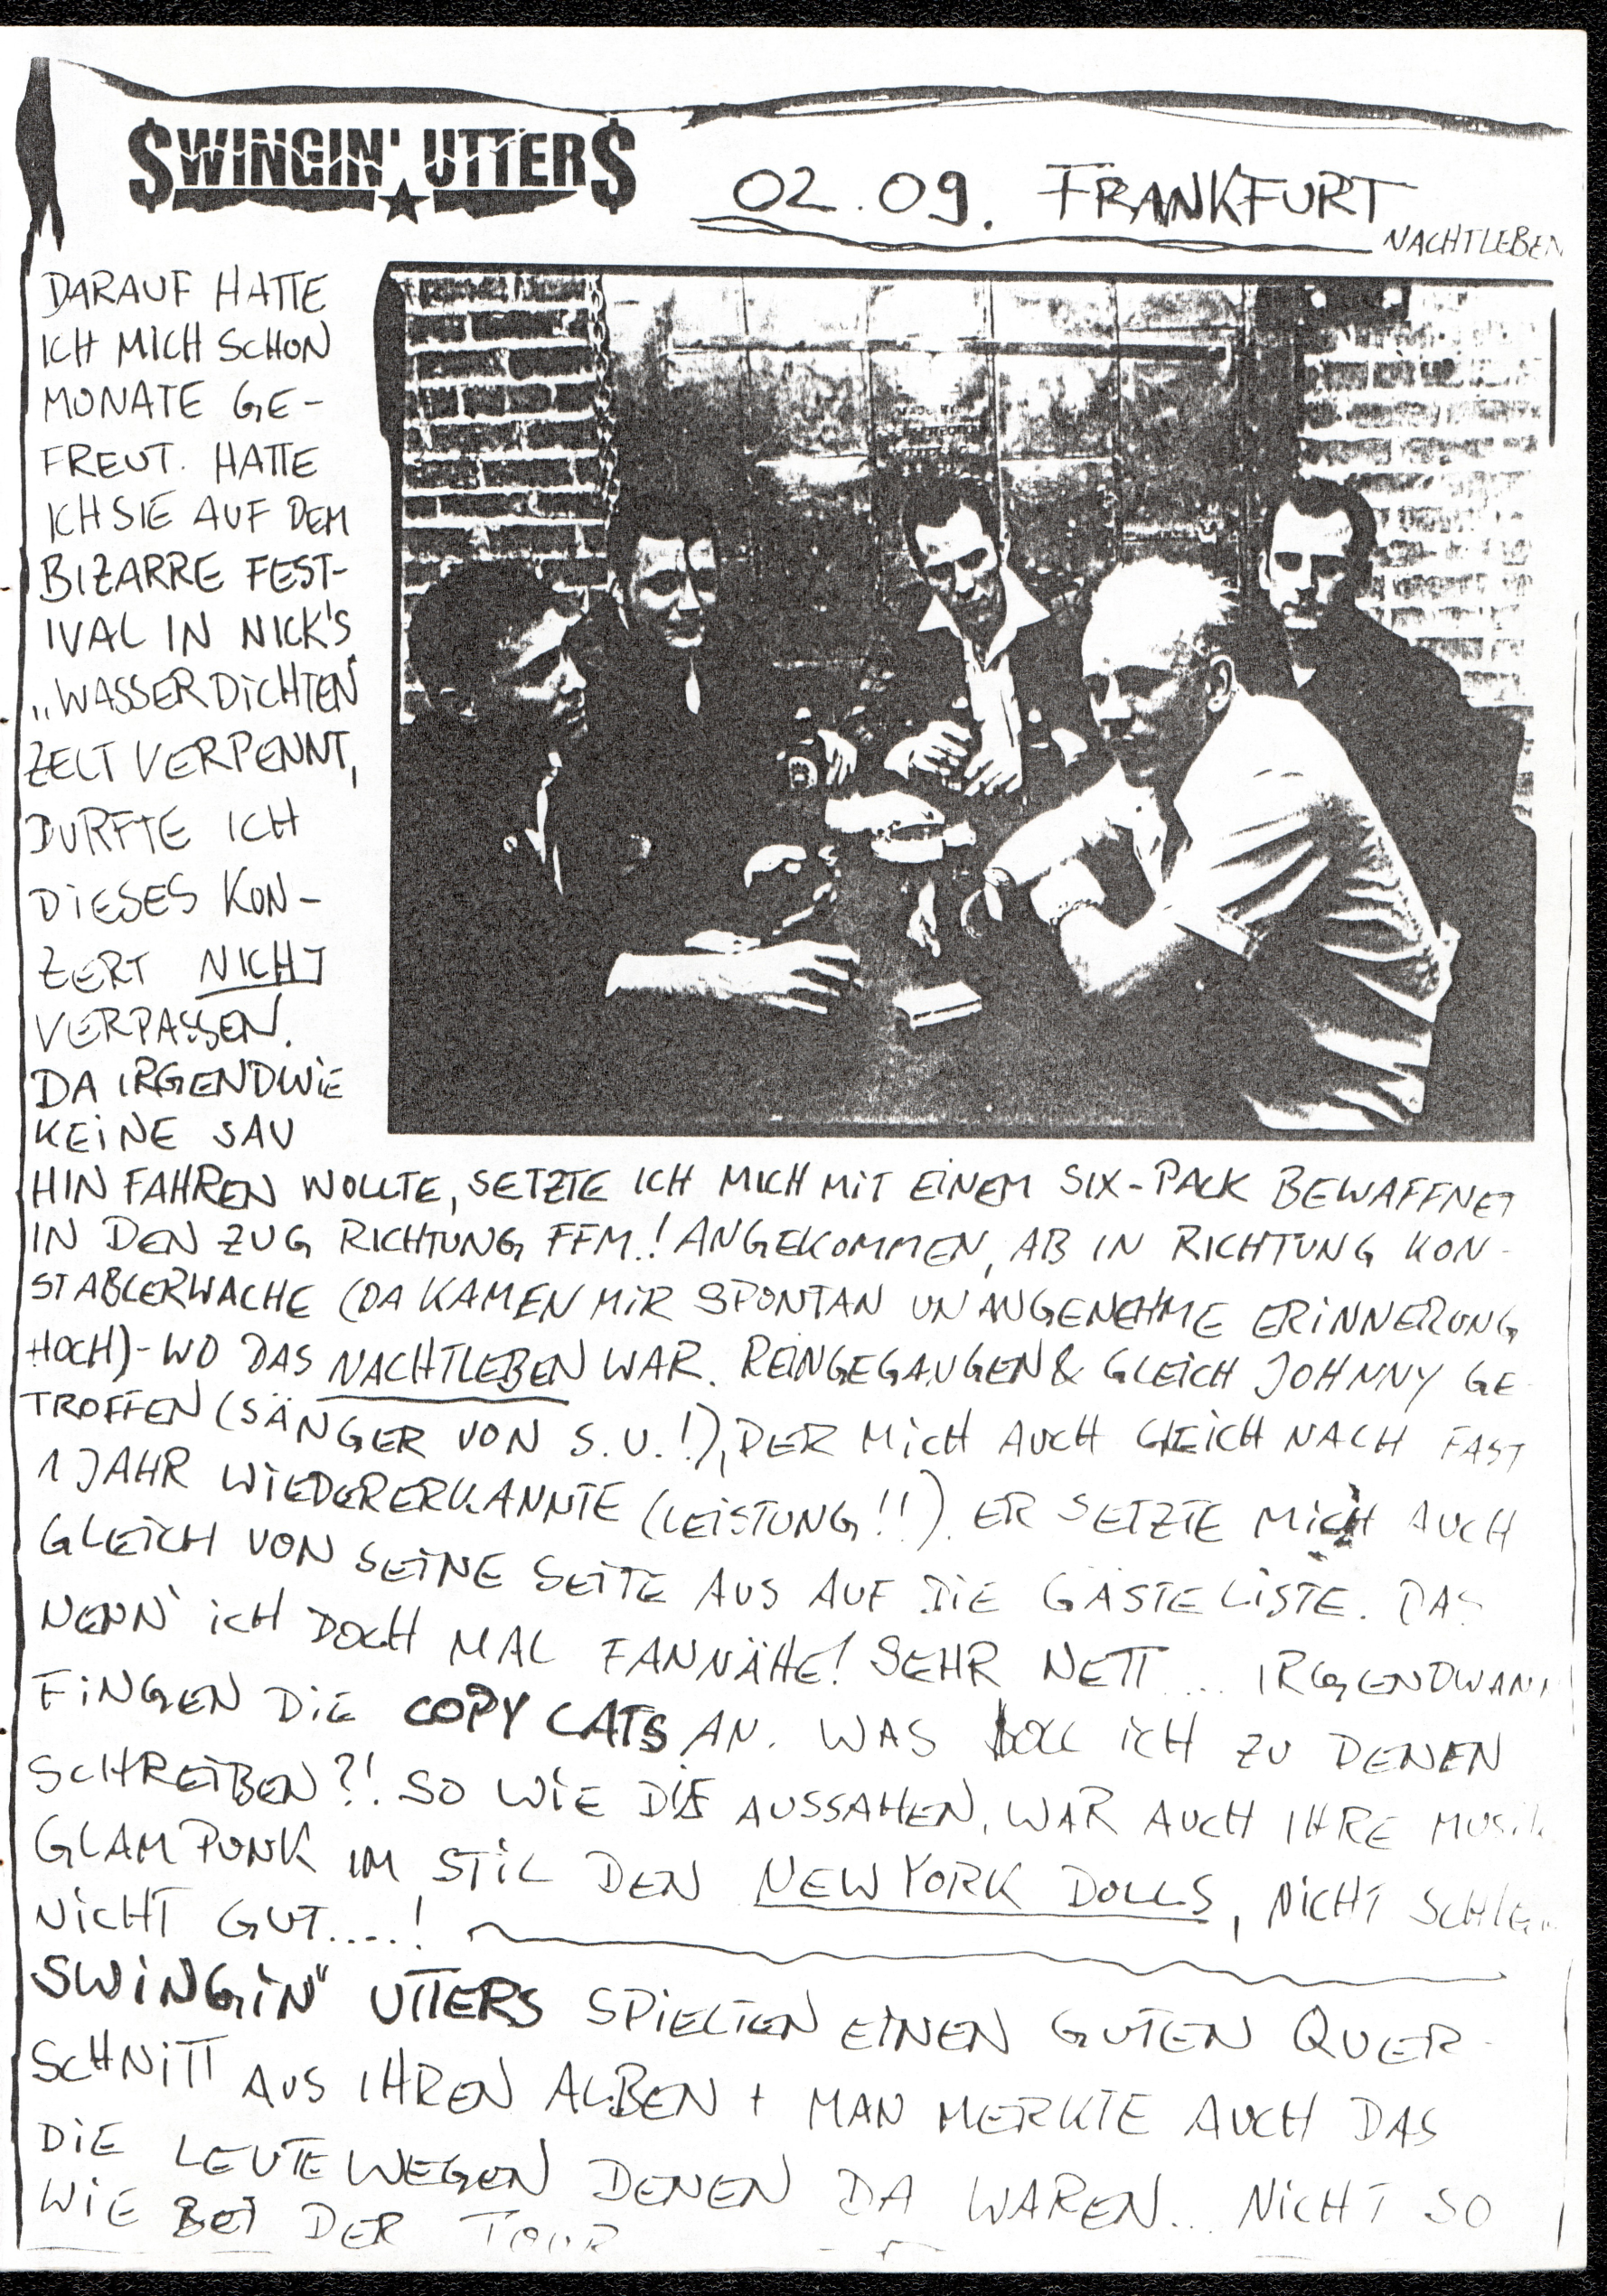 $WINGIN' UTTER$
02.09. FRANKFURT
NACHTLEBEN
DARAUF HATTE
ICH MICH SCHON
MONATE GE-
FREUT. HATTE
ICH SIE AUF DEM
BIZARRE FEST-
IVAL IN NICK'S
„WASSERDICHTEN"
ZELT VERPENNT,
DURFTE ICH
DIESES KON-
ZERT NICHT
VERPASSEN.
DA IRGENDWIE
KEINE SAU
HIN FAHREN WOLLTE, SETZTE ICH MICH MIT EINEM SIX-PACK BEWAFFNET
IN DEN ZUG RICHTUNG FFM.! ANGEKOMMEN, AB IN RICHTUNG KON-
STABLERWACHE (DA KAMEN MIR SPONTAN UNANGENEHME ERINNERUNG
HOCH)-WO DAS NACHTLEBEN WAR. REINGEGANGEN & GLEICH JOHNNY GE-
TROFFEN (SÄNGER VON S.U.!), DER MICH AUCH GLEICH NACH FAST
1 JAHR WIEDERERKANNTE (LEISTUNG!!). ER SETZTE MICH AUCH
GLEICH VON SEINE SEITE AUS AUF DIE GÄSTELISTE. DAS
NENN' ICH DOCH MAL FANNÄHE! SEHR NETT... IRGENDWANN
FINGEN DIE COPY CATS AN. WAS SOLL ICH ZU DENEN
SCHREIBEN?! SO WIE DIE AUSSAHEN, WAR AUCH IHRE MUSIK
GLAM PUNK IM STIL DEN NEW YORK DOLLS, NICHT
NICHT GUT....!
SWINGIN" UTTERS SPIELTEN EINEN GUTEN QUER-
SCHNITT AUS IHREN ALBEN + MAN MERKTE AUCH DAS
DIE LEUTE WEGEN DENEN DA WAREN... NICHT SO
WIE BEI DER TOUR